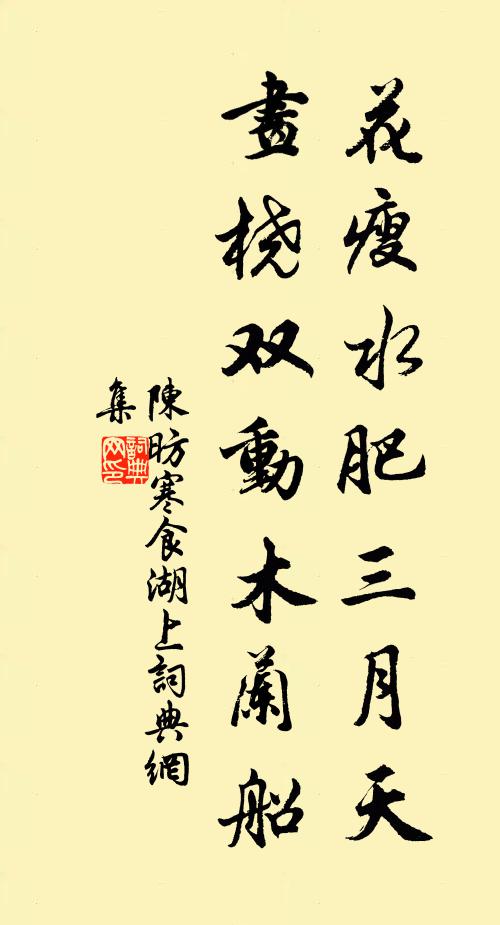 花瘦水肥三月天
畫桡双動木蘭船
陳昉寒食湖上詞典網
集
詞典網印